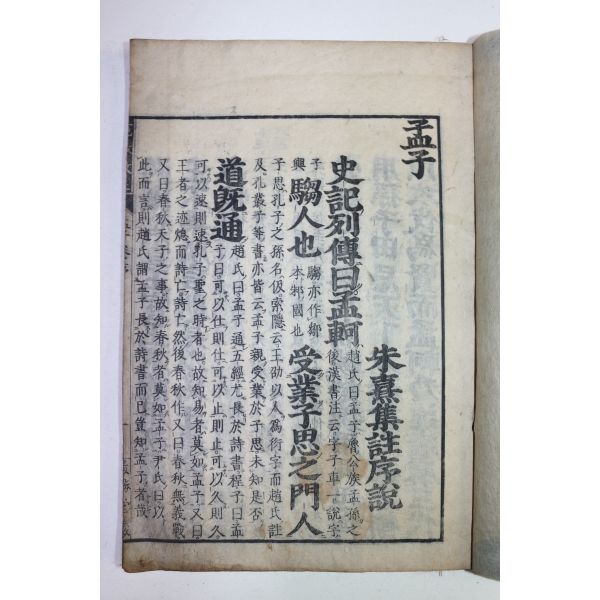 孟子
朱熹集註序說
史記列傳曰孟軻趙氏曰孟子魯公族孟孫之
後漢書注云字子車一說字
子輿騶人也騶亦作鄒
本邾國也受業子思之門人
子思孔子之孫名伋索隱云王劭以人爲衍字而趙氏註
及孔叢子等書亦皆云孟子親受業於子思未知是否
道旣通趙氏曰孟子通五經尤長於詩書程子曰孟
子曰可以仕則仕可以止則止可以久則久
可以速則速孔子聖之時者也故知易者莫如孟子又曰
王者之迹熄而詩亡詩亡然後春秋作又曰春秋無義戰
又曰春秋天子之事故知春秋者莫如孟子尹氏曰以
此而言則趙氏謂孟子長於詩書而已豈知孟子者哉